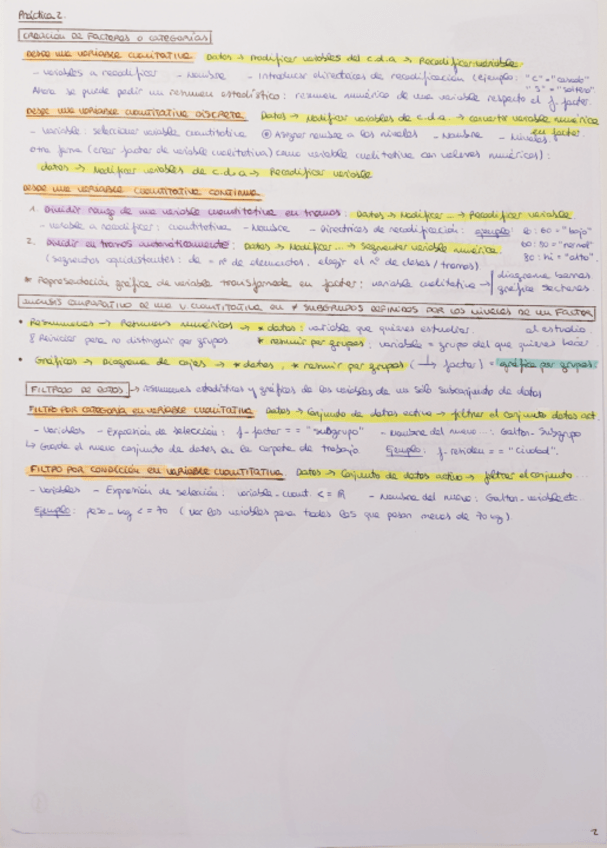 Práctica 2.
CREACIÓN DE FACTORES O CATEGORÍAS
DESDE UNA VARIABLE CUALITATIVA Datos → Modificar variables del c.d.a → Recodificar variable.
- variables a recodificar - Nombre - Introducir directrices de recodificación (ejemplo: "C"="casado"
"S"="soltero".
Ahora se puede pedir un resumen estadístico: resumen numérico de una variable respecto el f. factor.
DESDE UNA VARIABLE CUANTITATIVA DISCRETA Datos → Modificar variables de c.d.a. → convertir variable numérica
en factor.
- Variable: seleccionar variable cuantitativa Asignar nombre a los niveles - Nombre - Niveles
otra forma (crear factor de variable cualitativa) como variable cualitativa con valores numéricos):
datos → Modificar variables de c.d.a → Recodificar variable
DESDE UNA VARIABLE CUANTITATIVA CONTINUA
1. Dividir rango de una variable cuantitativa en tramos: Datos → Modificar ... → Recodificar variable
- variable a recodificar: cuantitativa - Nombre - Directrices de recodificación: ejemplo: lo:60="bajo"
60:80="normal"
80:hi="alto".
2. Dividir en tramos automáticamente: Datos → Modificar... → segmentar variable numérica.
(segmentos equidistantes: de = nº de elementos. elegir el nº de clases / tramos)
* Representación gráfica de variable transformada en factor: variable cualitativa → diagrama barras
gráfica sectores
ANÁLISIS COMPARATIVO DE UNA V. CUANTITATIVA EN ≠ SUBGRUPOS DEFINIDOS POR LOS NIVELES DE UN FACTOR
• Resúmenes → Resumen numéricos → * datos: variable que quieres estudiar.
Reiniciar para no distinguir por grupos * resumir por grupos: variable = grupo del que quieres hacer
al estudio.
• Gráficos → Diagrama de cajas → * datos, * resumir por grupos (→ factor) = gráfica por grupos.
FILTRADO DE DATOS → resúmenes estadísticos y gráficos de las variables de un sólo subconjunto de datos
FILTRO POR CATEGORÍA EN VARIABLE CUALITATIVA Datos → Conjunto de datos activo → filtrar el conjunto datos act.
- Variables - Expresión de selección: f-factor == "subgrupo" - Nombre del nuevo ...: Galton-Subgrupo
↳ Guarda el nuevo conjunto de datos en la carpeta de trabajo Ejemplo: f-residen == "ciudad".
FILTRO POR CONDICIÓN EN VARIABLE CUANTITATIVA: Datos → Conjunto de datos activo → filtrar el conjunto ...
- Variables - Expresión de selección: variable-cuant. <= ℝ - Nombre del nuevo: Galton-variable etc.
Ejemplo: peso_kg <= 70 (ver las variables para todos los que pesan menos de 70 kg).
2